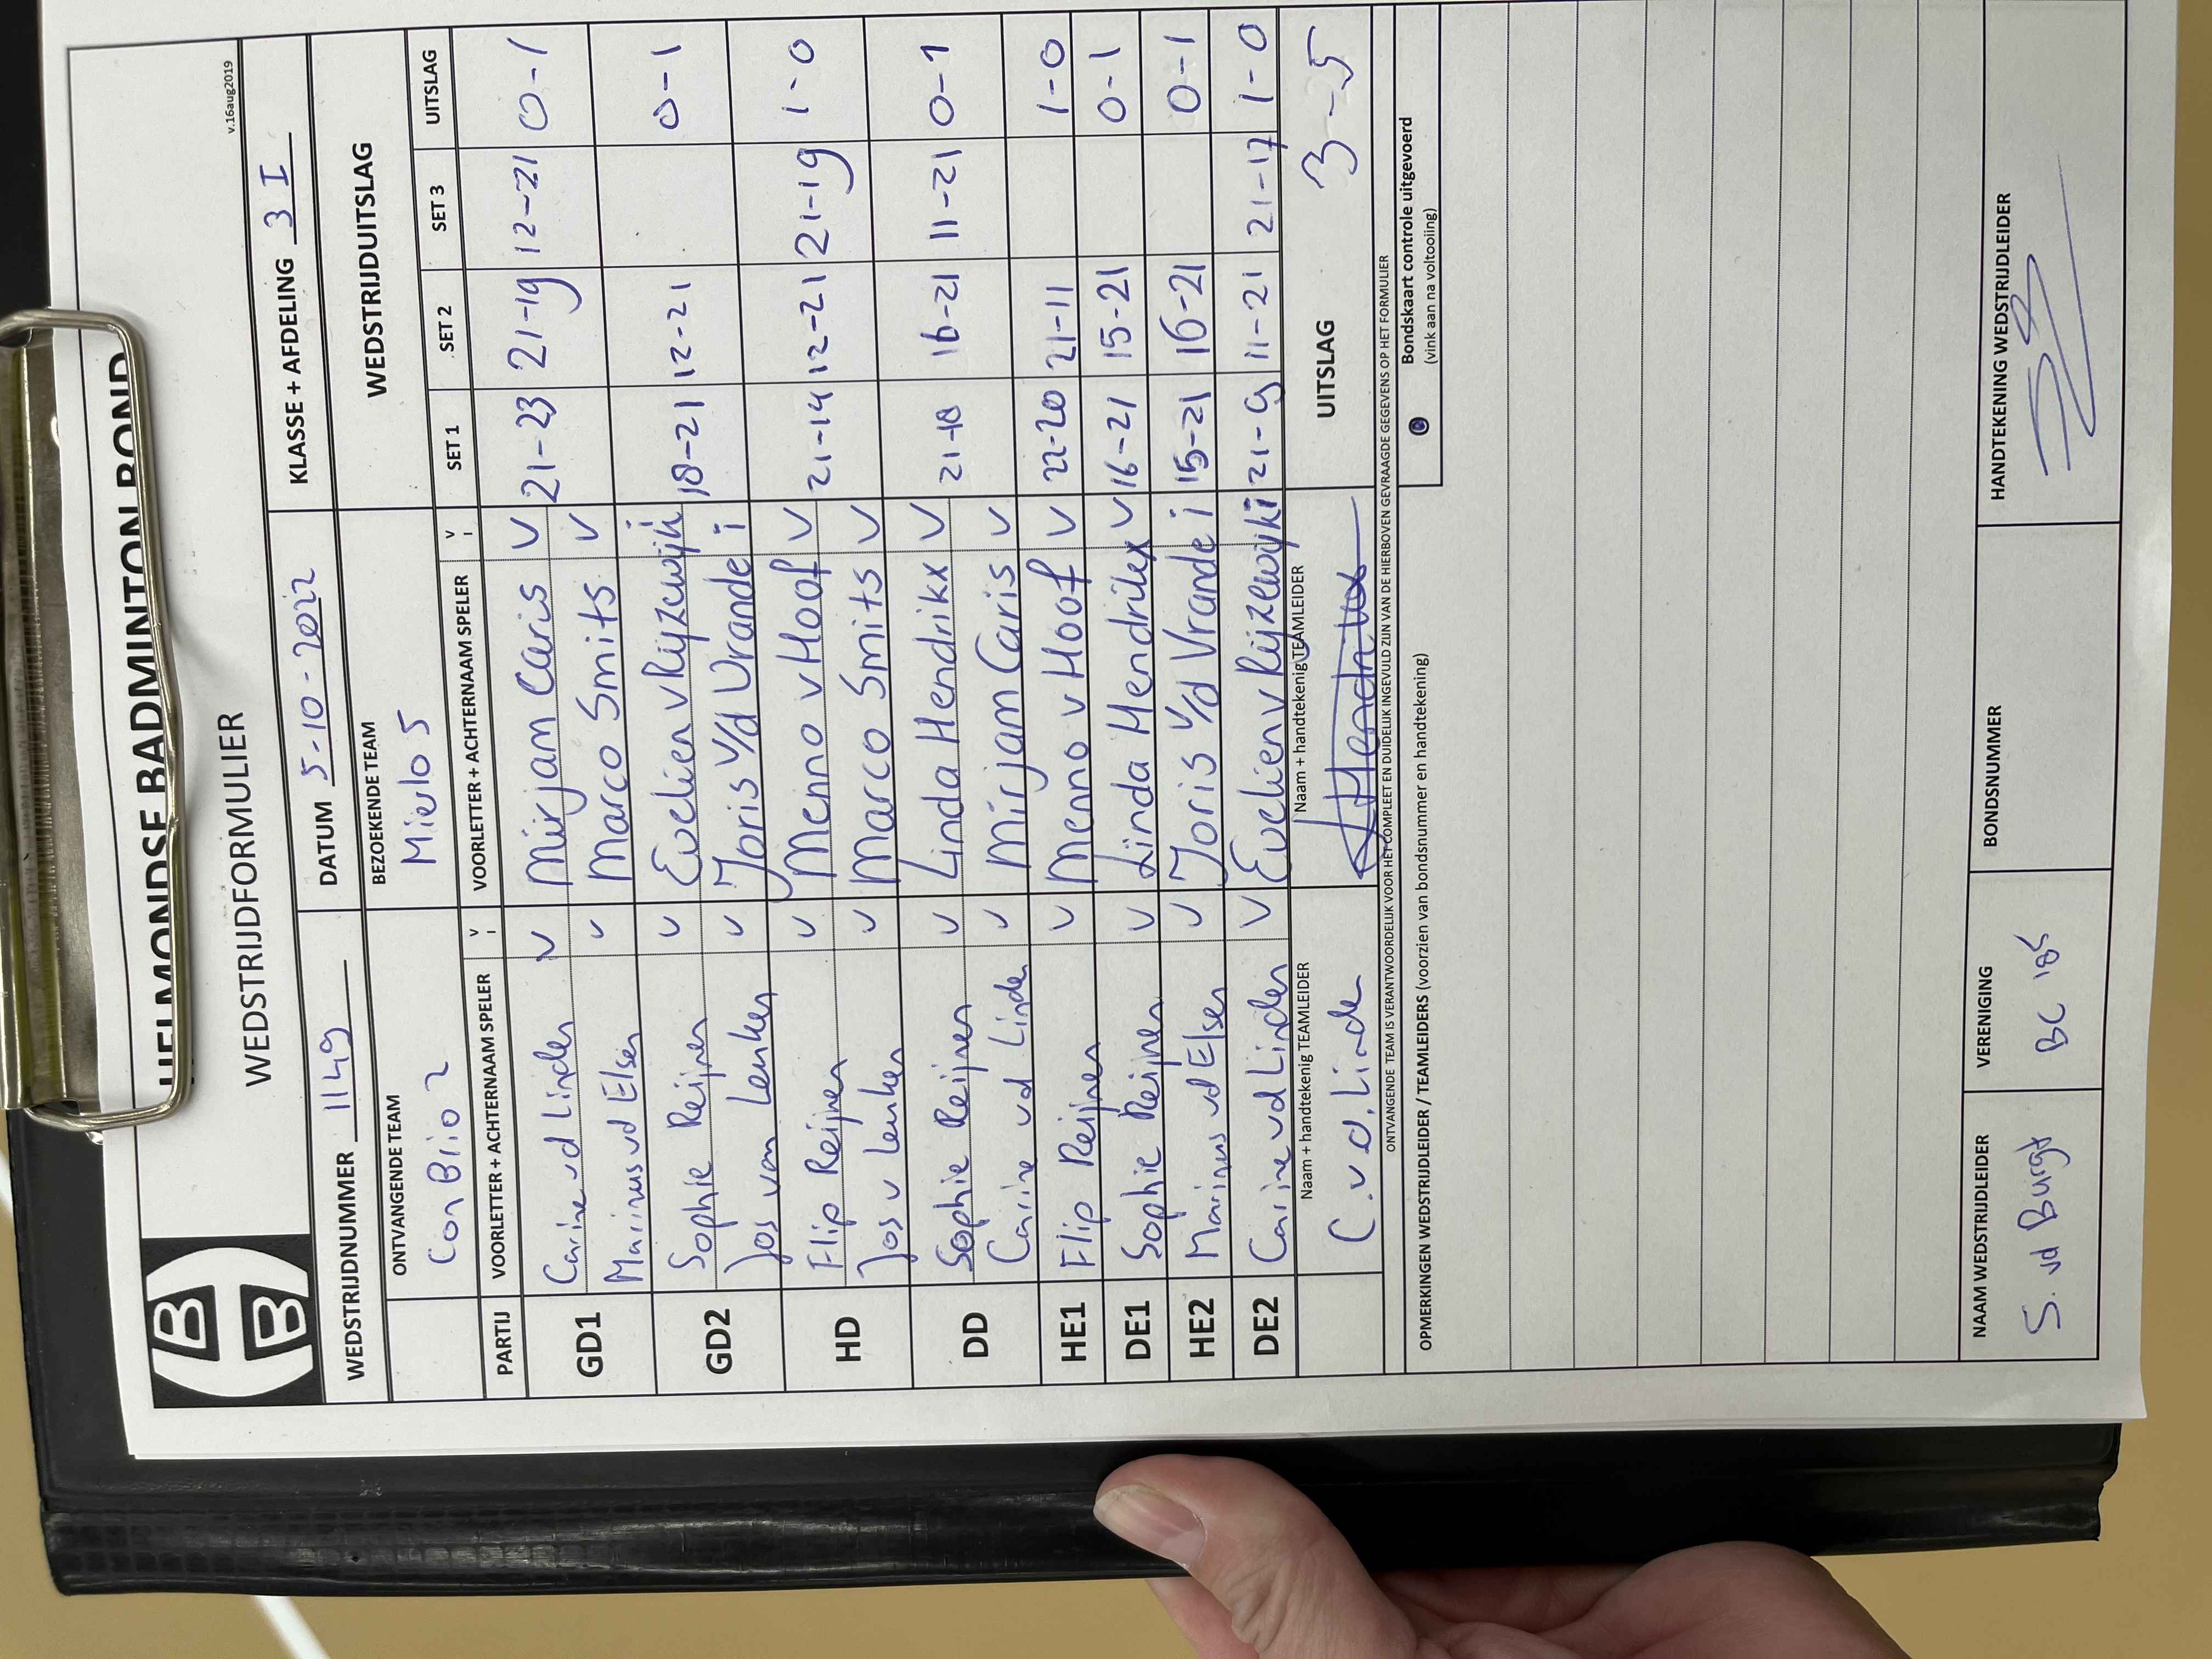 HELMONDSE BADMINTON BOND
v.16aug2019
WEDSTRIJDFORMULIER
WEDSTRIJDNUMMER 1149 DATUM 5-10-2022 KLASSE + AFDELING 3 I
ONTVANGENDE TEAM BEZOEKENDE TEAM WEDSTRIJDUITSLAG
Con Brio 2 Mierlo 5
PARTIJ VOORLETTER + ACHTERNAAM SPELER V I VOORLETTER + ACHTERNAAM SPELER V I SET 1 SET 2 SET 3 UITSLAG
GD1 Carine vd Linden V Mirjam Caris V 21-23 21-19 12-21 0-1
Marinus vd Elsen V Marco Smits V
GD2 Sophie Reijnen V Evelien v Rijzewijk i 18-21 12-21 0-1
Jos van Lenken V Joris v/d Vrande i
HD Flip Reijnen V Menno v Hoof V 21-14 12-21 21-19 1-0
Jos v Lenken V Marco Smits V
DD Sophie Reijnen V Linda Hendrikx V 21-18 16-21 11-21 0-1
Carine vd Linden V Mirjam Caris V
HE1 Flip Reijnen V Menno v Hoof V 22-20 21-11 1-0
DE1 Sophie Reijnen V Linda Hendrikx V 16-21 15-21 0-1
HE2 Marinus vd Elsen V Joris v/d Vrande i 15-21 16-21 0-1
DE2 Carine vd Linden V Evelien v Rijzewijk i 21-9 11-21 21-17 1-0
Naam + handtekenig TEAMLEIDER Naam + handtekenig TEAMLEIDER UITSLAG 3-5
C. v.d. Linde Hendrikx
ONTVANGENDE TEAM IS VERANTWOORDELIJK VOOR HET COMPLEET EN DUIDELIJK INGEVULD ZIJN VAN DE HIERBOVEN GEVRAAGDE GEGEVENS OP HET FORMULIER
OPMERKINGEN WEDSTRIJDLEIDER / TEAMLEIDERS (voorzien van bondsnummer en handtekening)
Bondskaart controle uitgevoerd
(vink aan na voltooiing)
NAAM WEDSTRIJDLEIDER VERENIGING BONDSNUMMER HANDTEKENING WEDSTRIJDLEIDER
S. vd Burgt BC '85